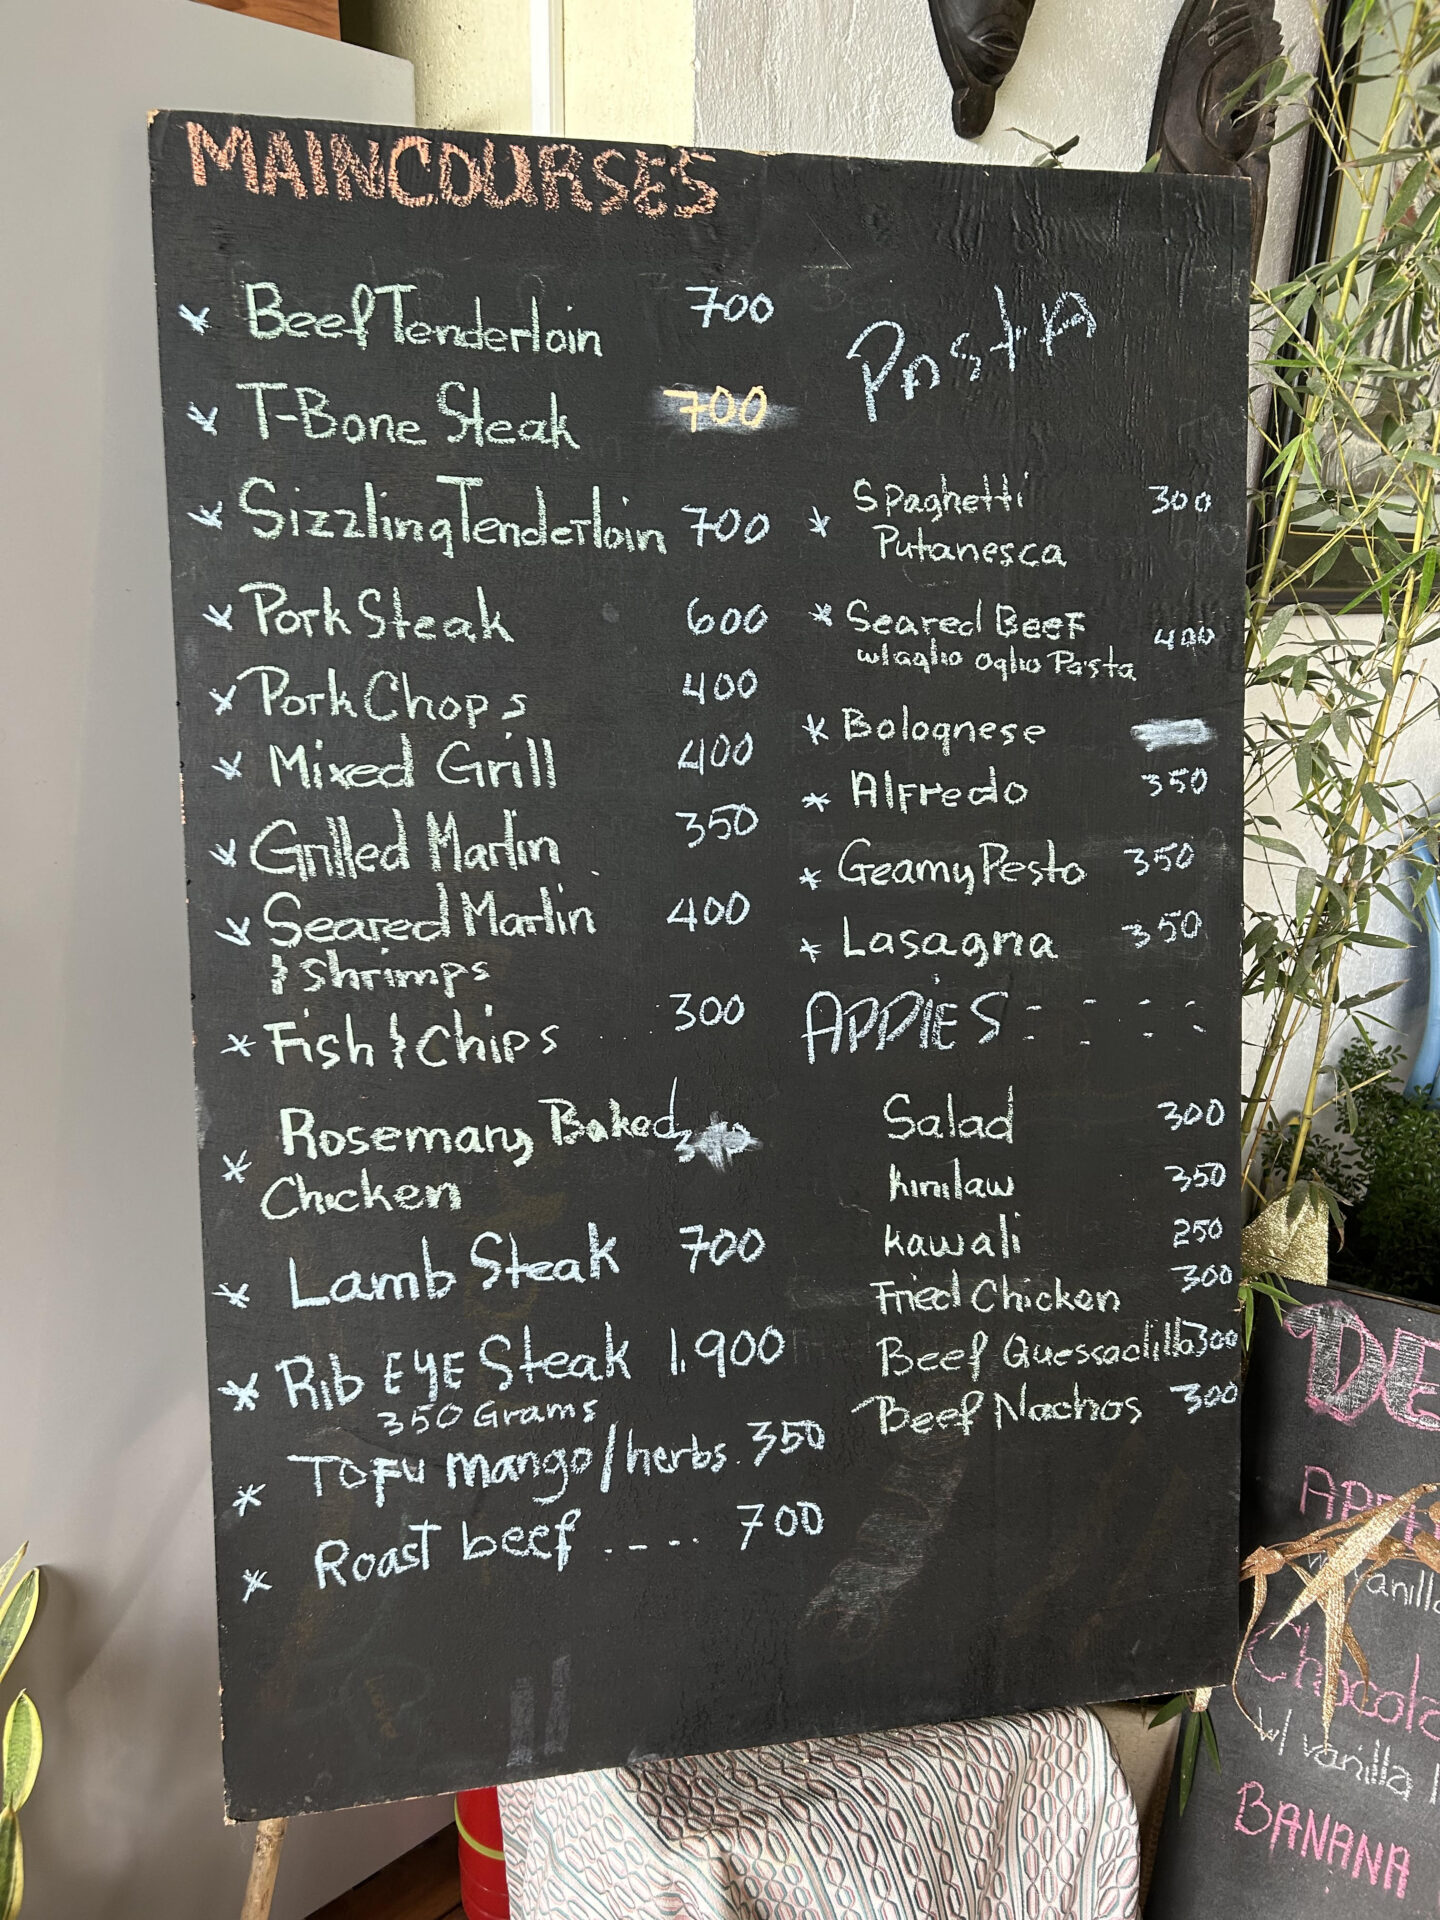 MAINCOURSES
* Beef Tenderloin 700
* T-Bone Steak 700
* Sizzling Tenderloin 700
* Pork Steak 600
* Pork Chops 400
* Mixed Grill 400
* Grilled Marlin 350
* Seared Marlin 400
& shrimps
* Fish & Chips 300
* Rosemary Baked
Chicken
* Lamb Steak 700
* Rib EYE Steak 1.900
350 Grams
* TOFU mango/herbs. 350
* Roast beef .... 700
PAStA
* Spaghetti 300
Putanesca
* Seared BEEF 400
w/aglio oglio Pasta
* Bolognese
* Alfredo 350
* Geamy Pesto 350
* Lasagna 350
APPIES:
Salad 300
kinilaw 350
kawali 250
Fried Chicken 300
Beef Quessadilla 300
Beef Nachos 300
DE
vanilla
Chocola
w/ vanilla
BANANA